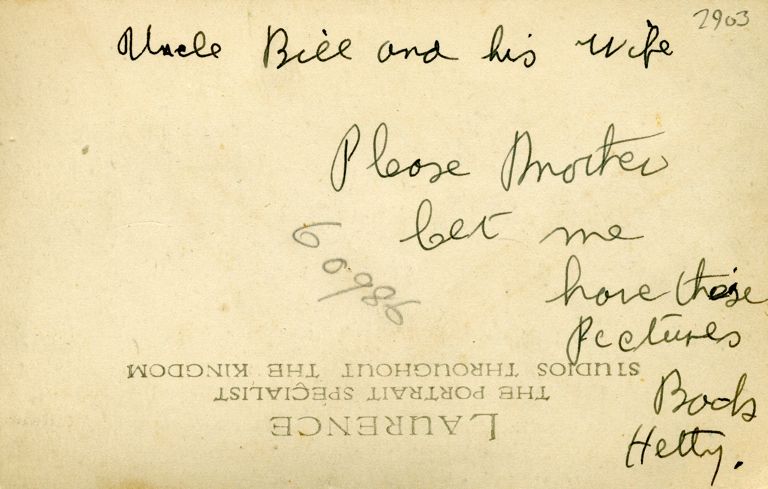 2903
Uncle Bill and his Wife
Please Brother
let me
have these
Pictures
Back
Hetty.
60986
LAURENCE
THE PORTRAIT SPECIALIST
STUDIOS THROUGHOUT THE KINGDOM